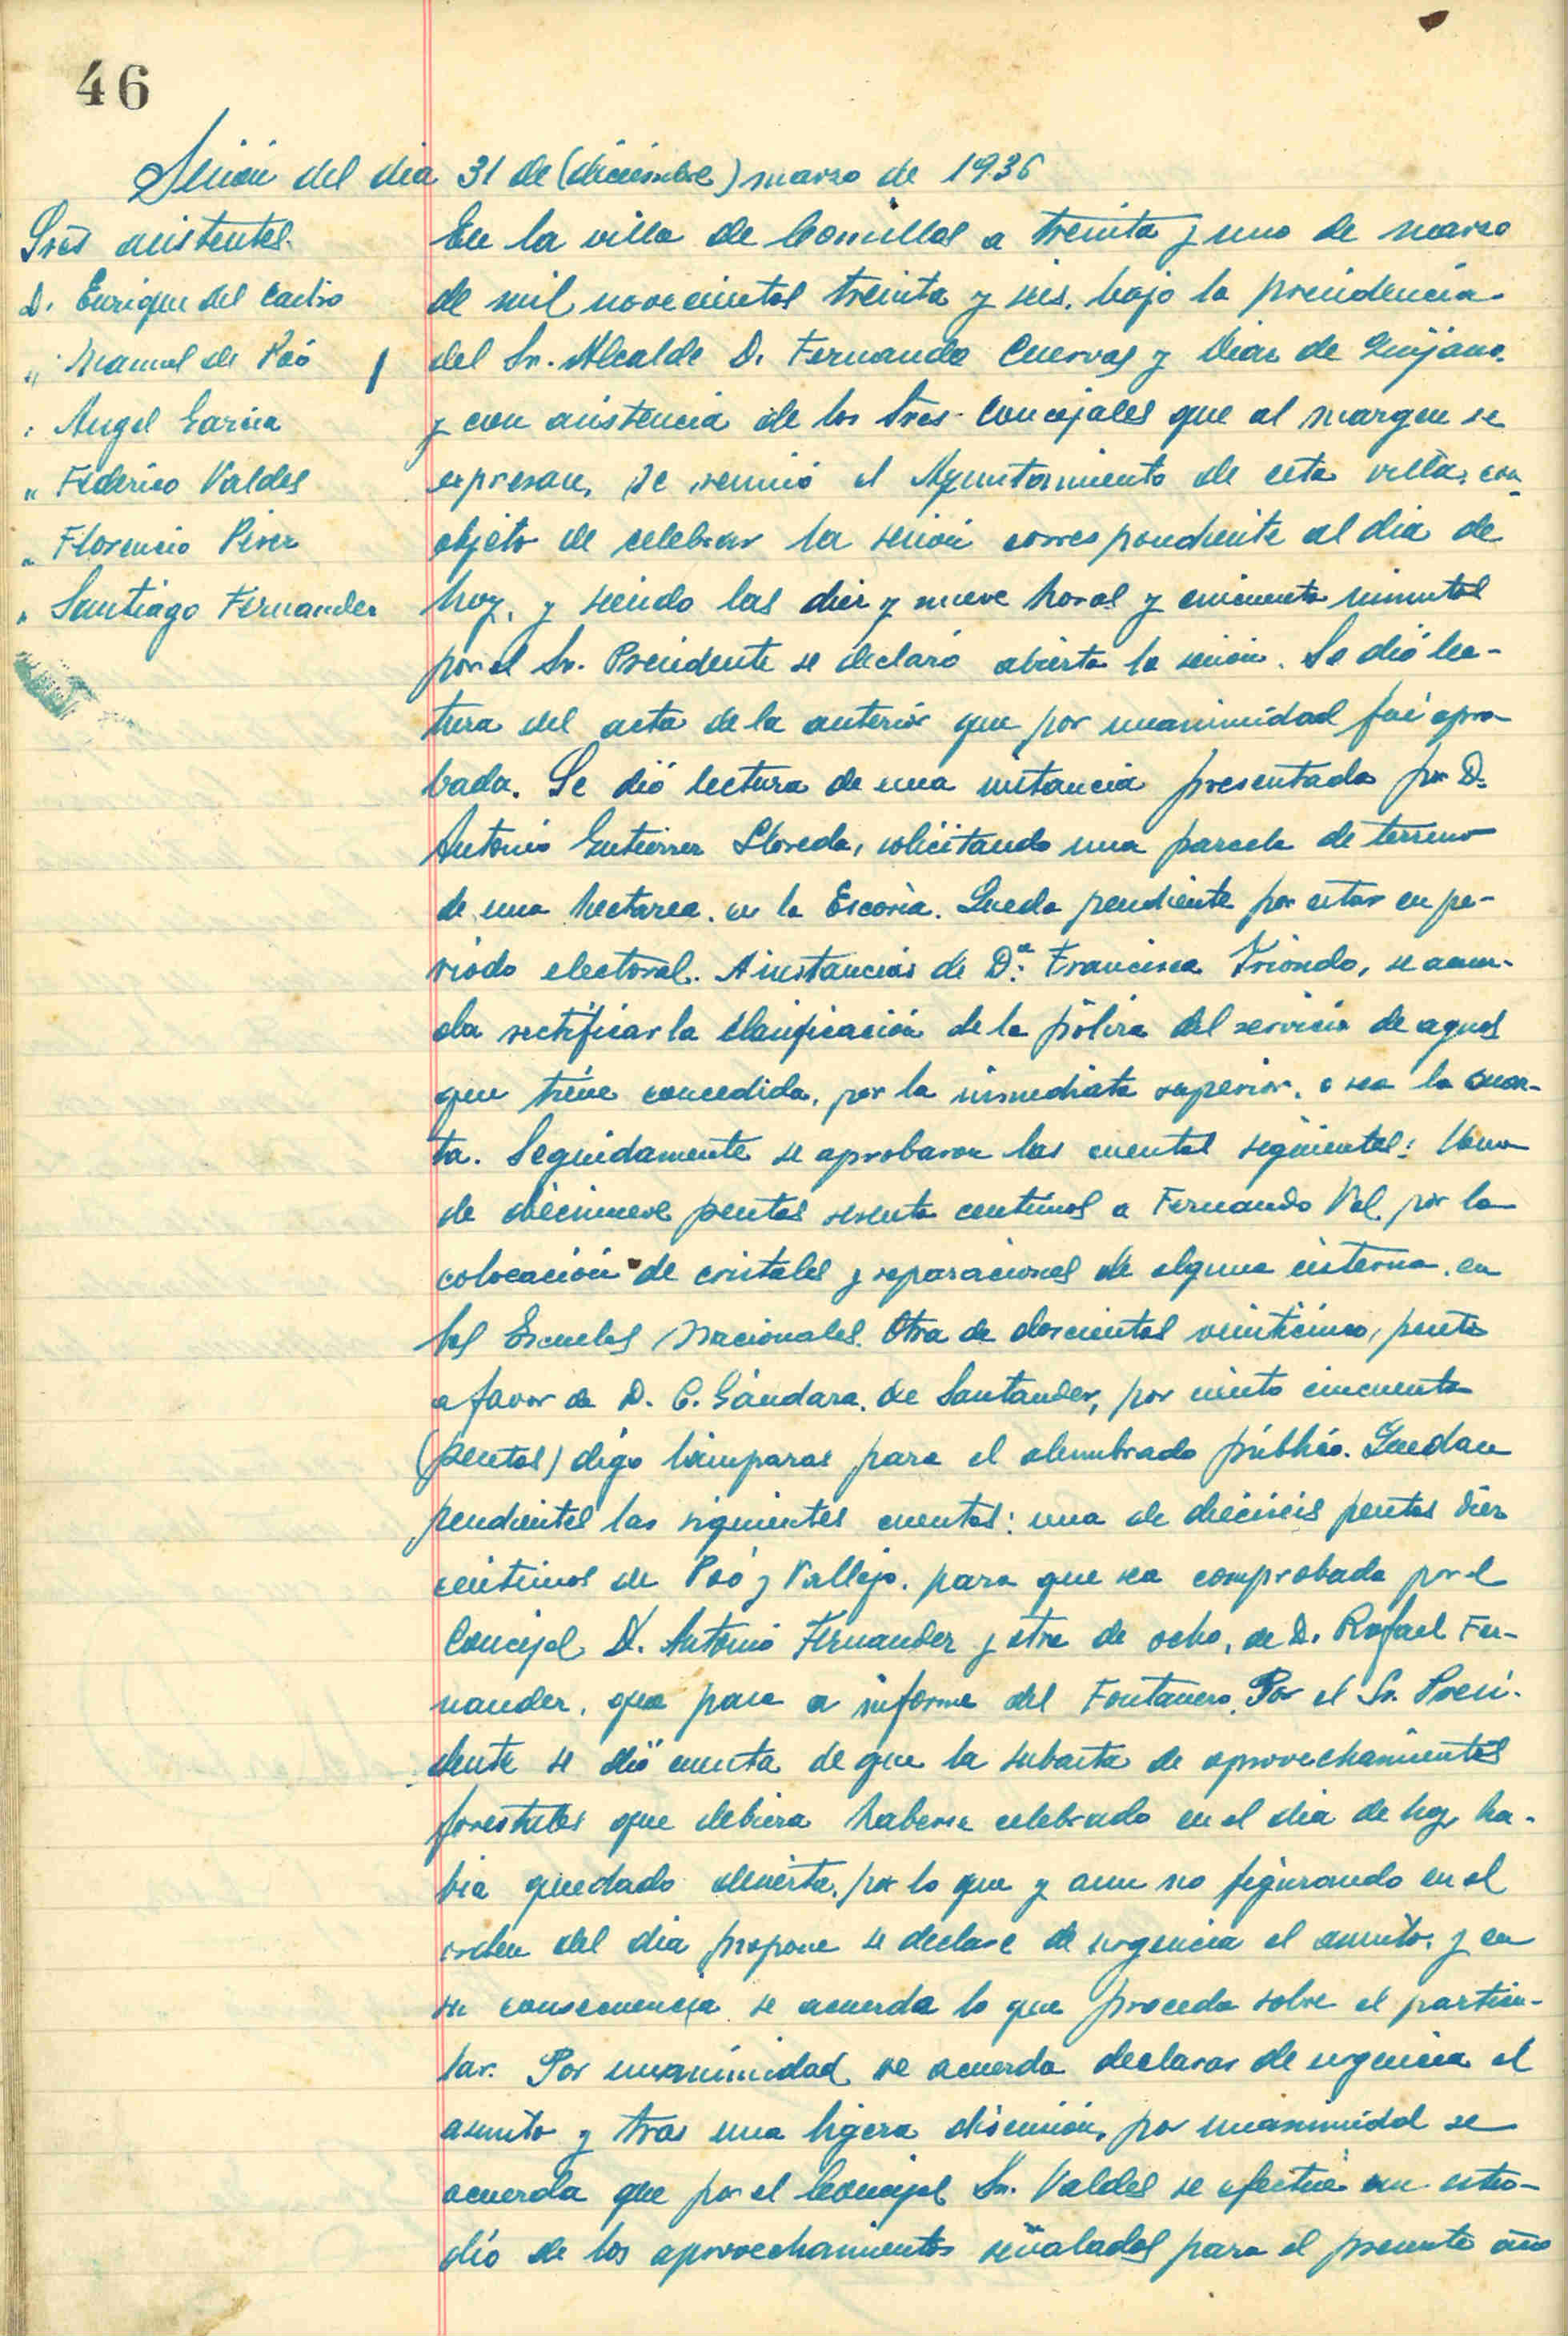 46
Sesión del dia 31 de (diciembre) marzo de 1936
Sres asistentes.
D. Enrique del Castro
" Manuel de Poó
" Angel Garcia
" Federico Valdes
" Florencio Pérez
" Santiago Fernandez
En la villa de Comillas a treinta y uno de marzo
de mil novecientos treinta y seis, bajo la presidencia
del Sr. Alcalde D. Fernando Cuervas y Diaz de Quijano,
y con asistencia de los Sres. Concejales que al margen se
expresan, se reunió el Ayuntamiento de esta villa, con
objeto de celebrar la sesión correspondiente al dia de
hoy, y siendo las diez y nueve horas y cincuenta minutos
por el Sr. Presidente se declaró abierta la sesión. Se dió lec-
tura del acta de la anterior que por unanimidad fué apro-
bada. Se dió lectura de una instancia presentada por D.
Antonio Gutierrez Lloreda, solicitando una parcela de terreno
de una hectarea, en la Escoria. Queda pendiente por estar en pe-
riodo electoral. A instancias de Dª. Francisca Iriondo, se acuer-
da rectificar la clasificación de la póliza del servicio de aguas
que tiene concedida, por la inmediata superior, o sea la cuar-
ta. Seguidamente se aprobaron las cuentas siguientes: Una
de diecinueve pesetas sesenta centimos a Fernando Val, por la
colocación de cristales y reparaciones de alguna cisterna, en
las Escuelas Nacionales. Otra de doscientas veinticinco, pesetas
a favor de D. C. Gándara, de Santander, por ciento cincuenta
(pesetas) digo lámparas para el alumbrado público. Quedan
pendientes las siguientes cuentas: una de dieciseis pesetas diez
centimos de Poó y Vallejo, para que sea comprobada por el
Concejal D. Antonio Fernandez y otra de ocho, de D. Rafael Fer-
nandez, que pase a informe del Fontanero. Por el Sr. Presi-
dente se dió cuenta de que la subasta de aprovechamientos
forestales que debiera haberse celebrado en el dia de hoy, ha-
bia quedado desierta, por lo que y aun no figurando en el
orden del dia propone se declare de urgencia el asunto, y en
su consecuencia se acuerda lo que proceda sobre el particu-
lar. Por unanimidad se acuerda declarar de urgencia el
asunto y tras una ligera discusión, por unanimidad se
acuerda que por el Concejal Sr. Valdes se efectúe un estu-
dio de los aprovechamientos señalados para el presente año